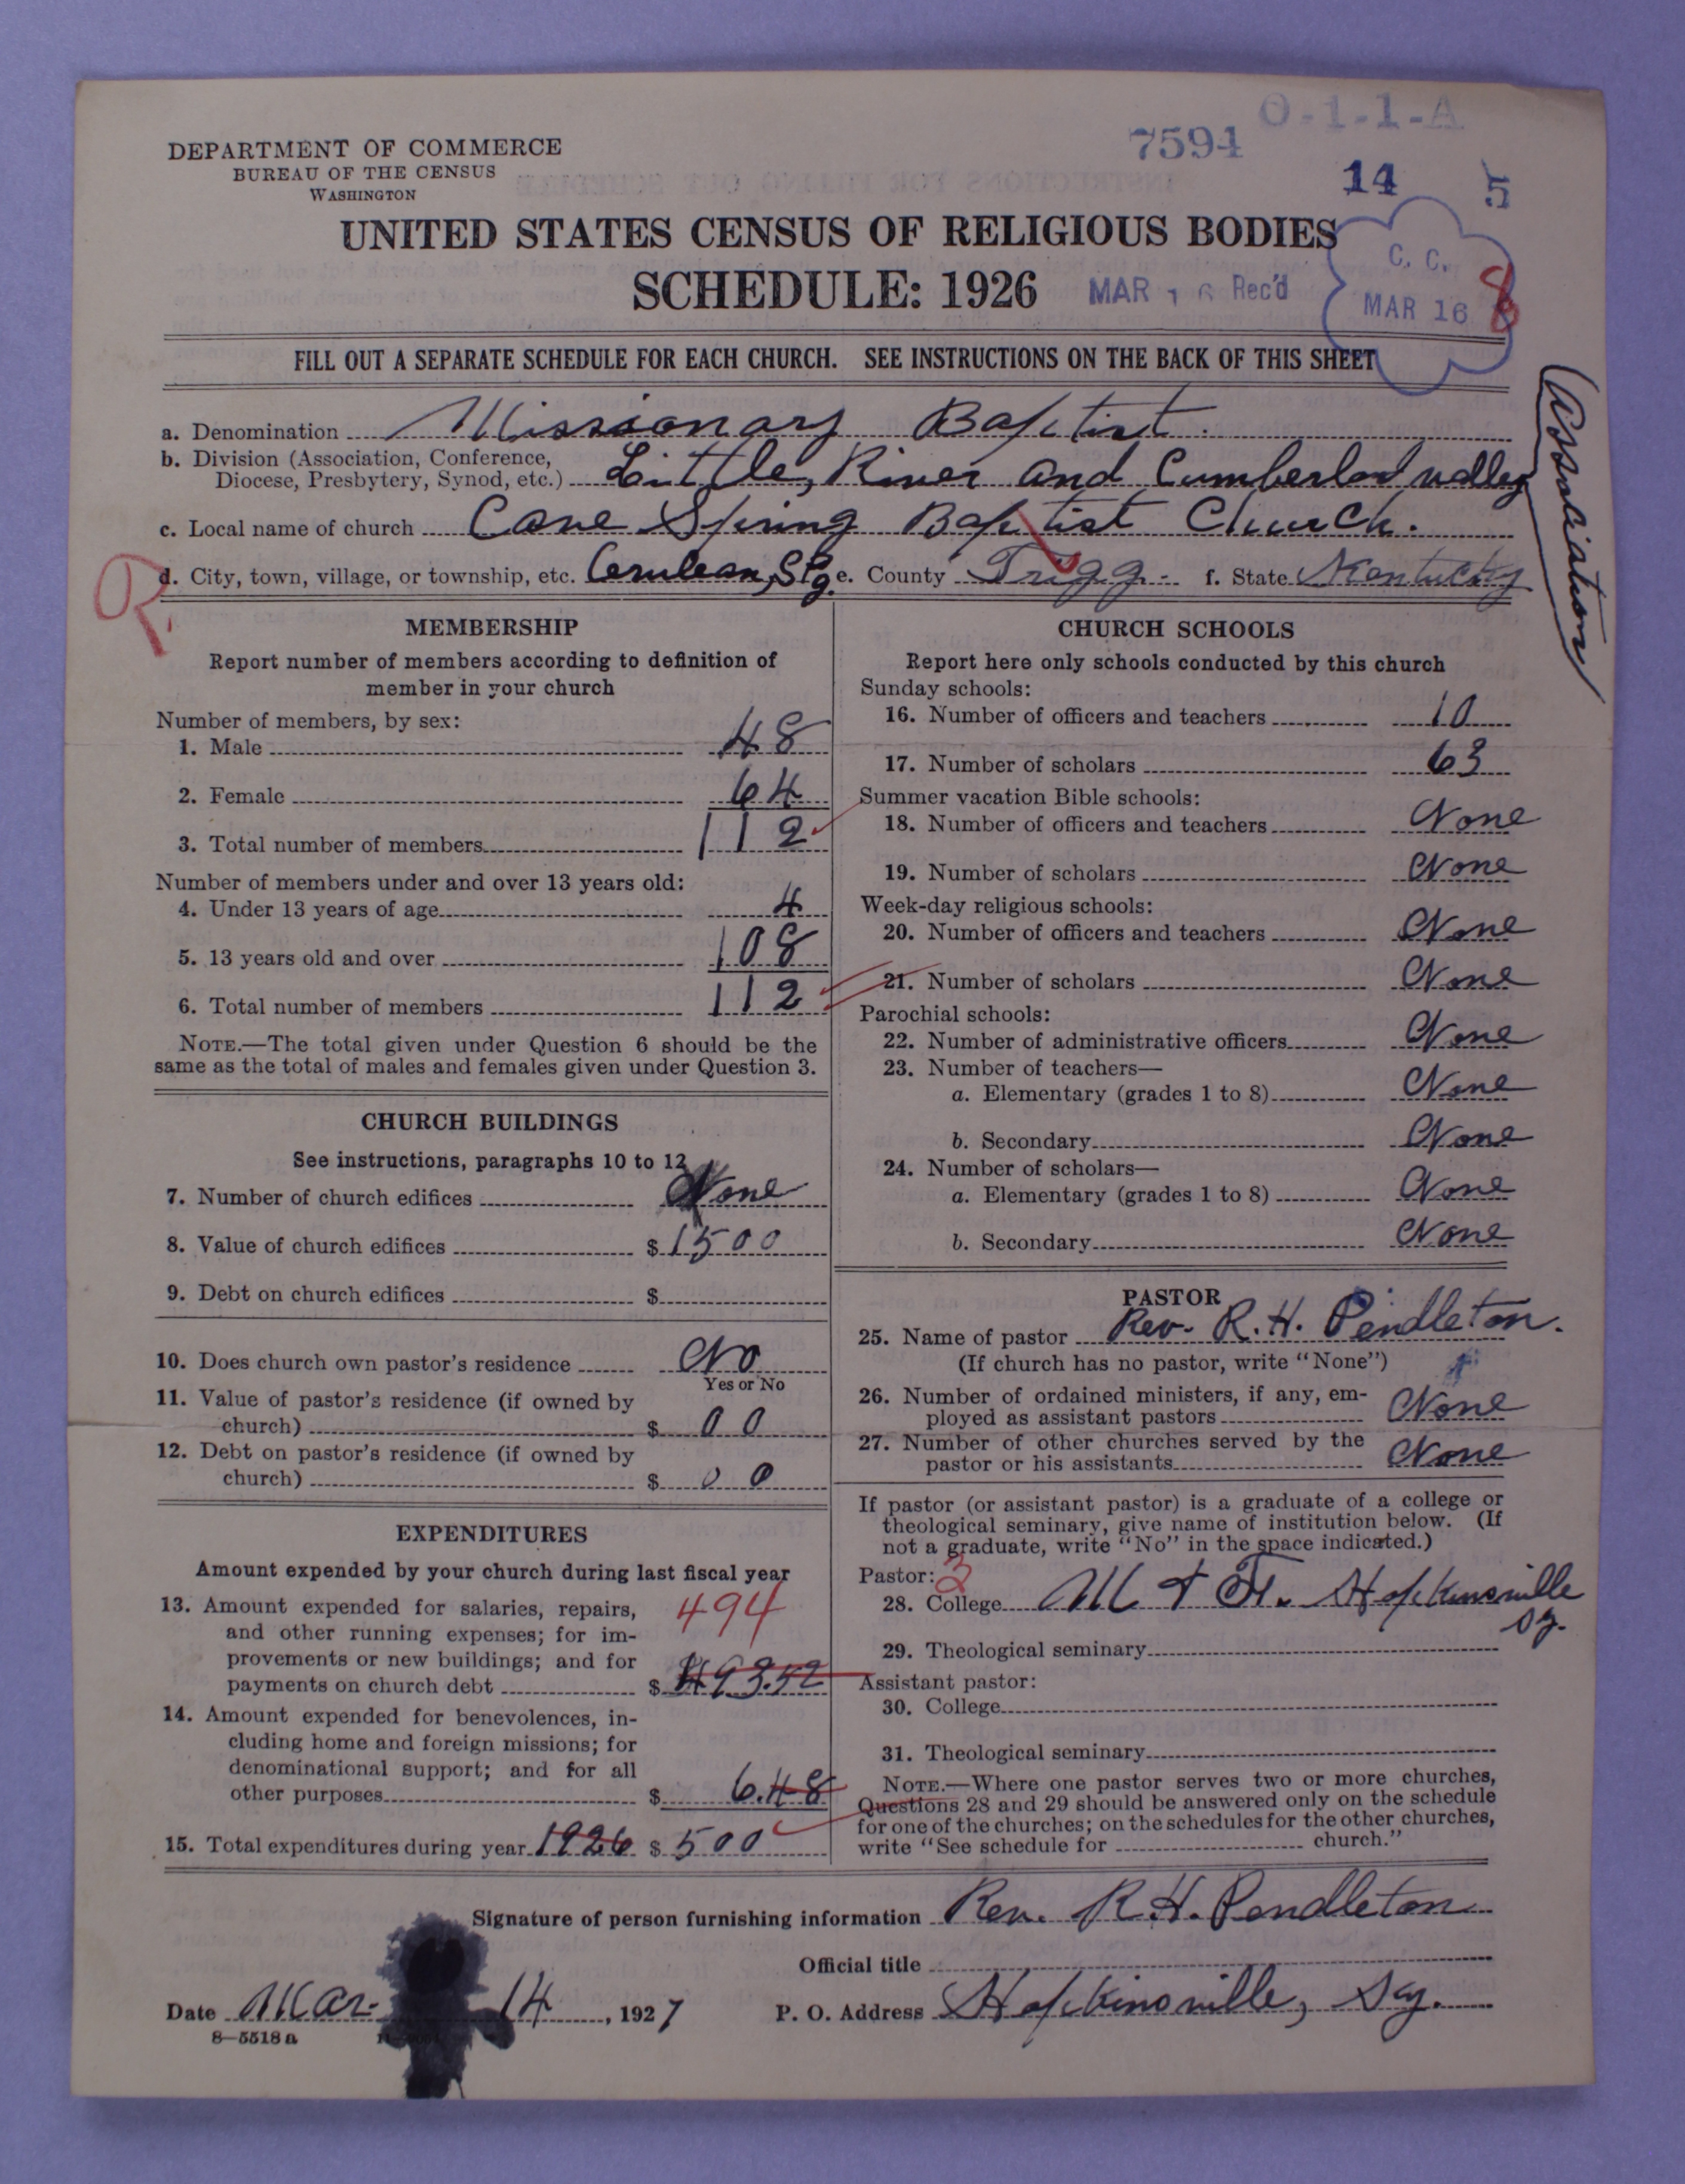 O-1-1-A
7594
14 5
DEPARTMENT OF COMMERCE
BUREAU OF THE CENSUS
WASHINGTON
UNITED STATES CENSUS OF RELIGIOUS BODIES
SCHEDULE: 1926
MAR 16 Rec'd
C. C.
MAR 16
8
FILL OUT A SEPARATE SCHEDULE FOR EACH CHURCH. SEE INSTRUCTIONS ON THE BACK OF THIS SHEET
a. Denomination Missionary Baptist.
b. Division (Association, Conference,
Diocese, Presbytery, Synod, etc.) Little, River and Cumberland valley
Association
c. Local name of church Cane Spring Baptist Church.
d. City, town, village, or township, etc. Cerulean, Spg. e. County Trigg. f. State Kentucky
MEMBERSHIP
Report number of members according to definition of
member in your church
Number of members, by sex:
1. Male 48
2. Female 64
3. Total number of members 112
Number of members under and over 13 years old:
4. Under 13 years of age 4
5. 13 years old and over 108
6. Total number of members 112
NOTE.—The total given under Question 6 should be the
same as the total of males and females given under Question 3.
CHURCH BUILDINGS
See instructions, paragraphs 10 to 12
7. Number of church edifices None
8. Value of church edifices $1500
9. Debt on church edifices $
10. Does church own pastor's residence No
Yes or No
11. Value of pastor's residence (if owned by
church) $ 00
12. Debt on pastor's residence (if owned by
church) $ 00
EXPENDITURES
Amount expended by your church during last fiscal year
13. Amount expended for salaries, repairs,
and other running expenses; for im-
provements or new buildings; and for
payments on church debt $ 493.52
494
14. Amount expended for benevolences, in-
cluding home and foreign missions; for
denominational support; and for all
other purposes $ 6.48
15. Total expenditures during year 1926 $ 500
CHURCH SCHOOLS
Report here only schools conducted by this church
Sunday schools:
16. Number of officers and teachers 10
17. Number of scholars 63
Summer vacation Bible schools:
18. Number of officers and teachers None
19. Number of scholars None
Week-day religious schools:
20. Number of officers and teachers None
21. Number of scholars None
Parochial schools:
22. Number of administrative officers None
23. Number of teachers—
a. Elementary (grades 1 to 8) None
b. Secondary None
24. Number of scholars—
a. Elementary (grades 1 to 8) None
b. Secondary None
PASTOR
25. Name of pastor Rev. R.H. Pendleton.
(If church has no pastor, write "None")
26. Number of ordained ministers, if any, em-
ployed as assistant pastors None
27. Number of other churches served by the
pastor or his assistants None
If pastor (or assistant pastor) is a graduate of a college or
theological seminary, give name of institution below. (If
not a graduate, write "No" in the space indicated.)
Pastor: 3
28. College M & F. Hopkinsville
Ky.
29. Theological seminary
Assistant pastor:
30. College
31. Theological seminary
NOTE.—Where one pastor serves two or more churches,
Questions 28 and 29 should be answered only on the schedule
for one of the churches; on the schedules for the other churches,
write "See schedule for church."
Signature of person furnishing information Rev. R.H. Pendleton
Official title
Date Mar. 14, 1927 P. O. Address Hopkinsville, Ky.
8—5518 a